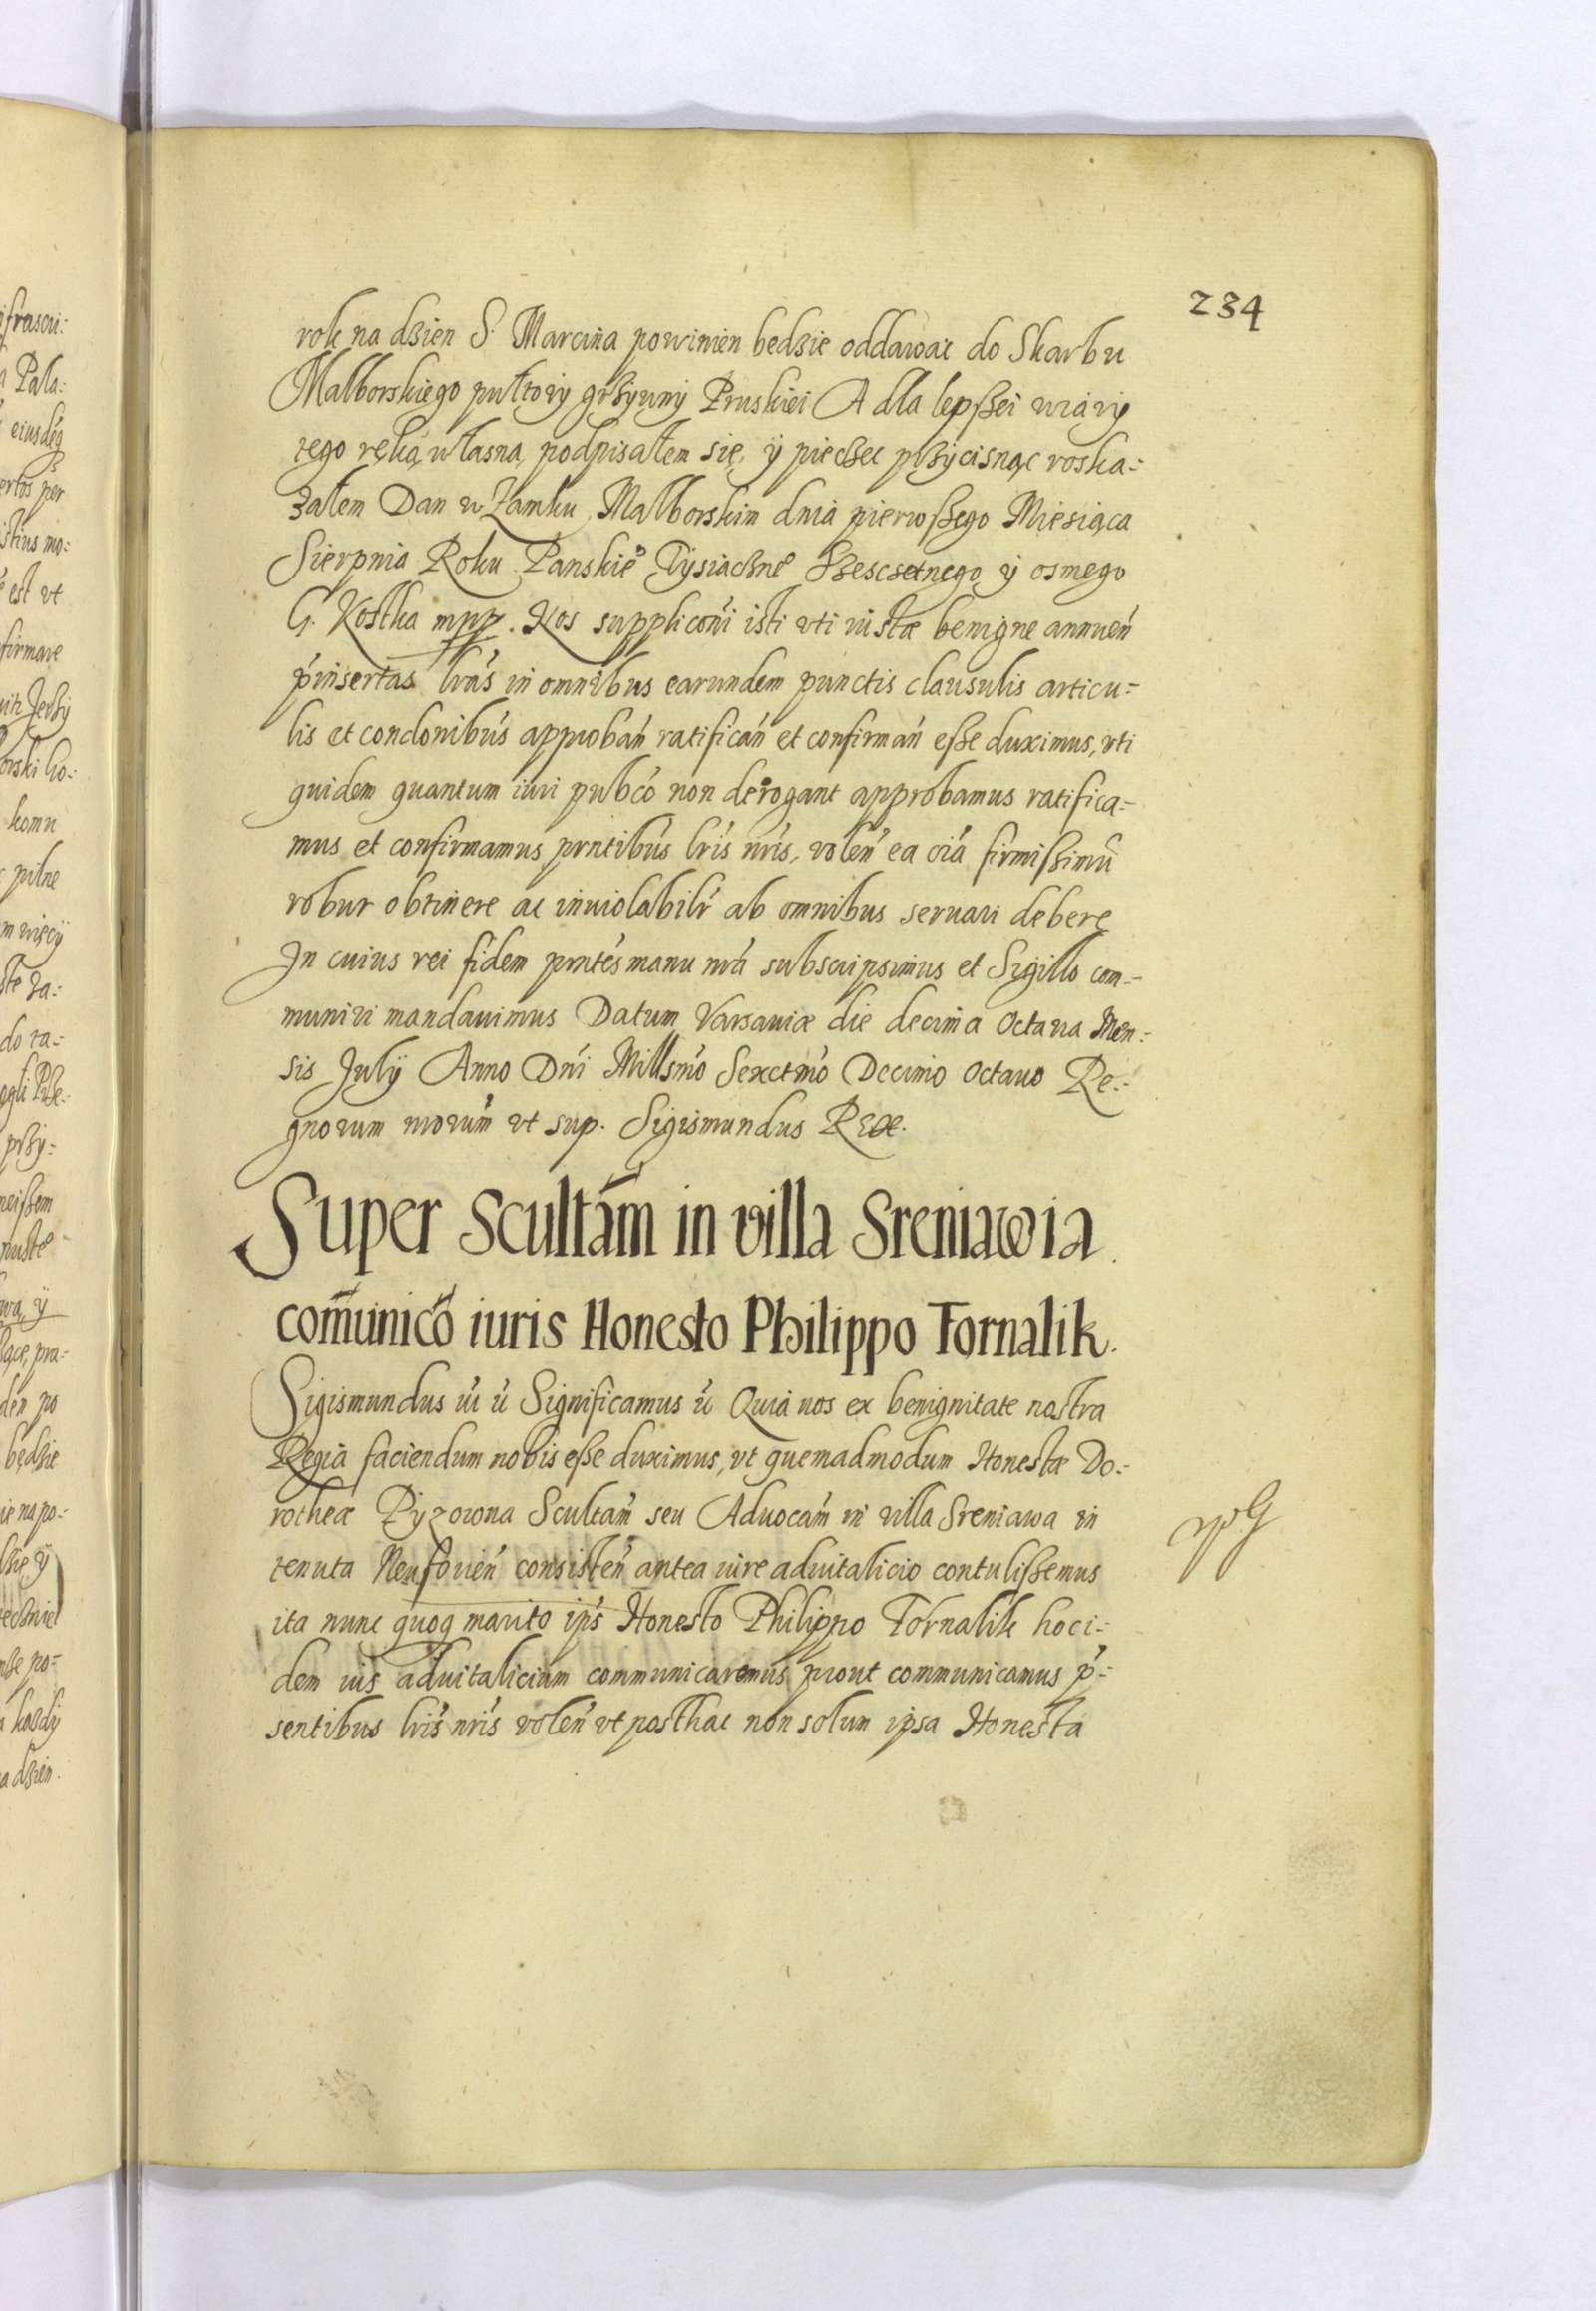 234
rok na dzien S. Marcina powinien bedzie oddawac do Skarbu
Malborskiego pułtory grzywny Pruskiei A dla lepszei wiary
tego ręką własną podpisałem się, ÿ pieczec przycisnąc roska-
załem Dan w Zamku Malborskim dnia pierwszego Miesiąca
Sierpnia Roku Panskie° Tysiaczne° Szescsetnego ÿ osmego
G. Kostka mpp. Nos suppliconi isti vti iustæ benigne annuen
pinsertas lras in omnibus earundem punctis clausulis articu-
lis et condonibus approban ratifican et confirman esse duximus, vti
quidem quantum iuri pubco non derogant approbamus ratifica-
mus et confirmamus prntibus lris nris, volen ea oia firmissimu
robur obtinere ac inuiolabilr ab omnibus seruari debere
In cuius rei fidem prntes manu nra subscripsimus et Sigillo com-
muniri mandauimus Datum Varsauiæ die decima Octaua Men-
sis Julÿ Anno Dni Millsmo Sexctmo Decimo Octauo Re-
gnorum nrorum vt sup. Sigismundus Rex.
Super Scultam in villa Sreniawia
comunico iuris Honesto Philippo Tornalik.
Sigismundus ui u Significamus u Quia nos ex benignitate nostra
Regia faciendum nobis esse duximus, vt quemadmodum Honestæ Do-
rotheæ Pyzowna Scultam seu Aduocam in villa Sreniawa in
tenuta Neufouien consisten antea iure aduitalicio contulissemus
ita nunc quoq marito ips Honesto Philippo Tornalik hoc i-
dem ius aduitalicium communicaremus prout communicamus p-
sentibus lris nris volen vt posthac non solum ipsa Honesta